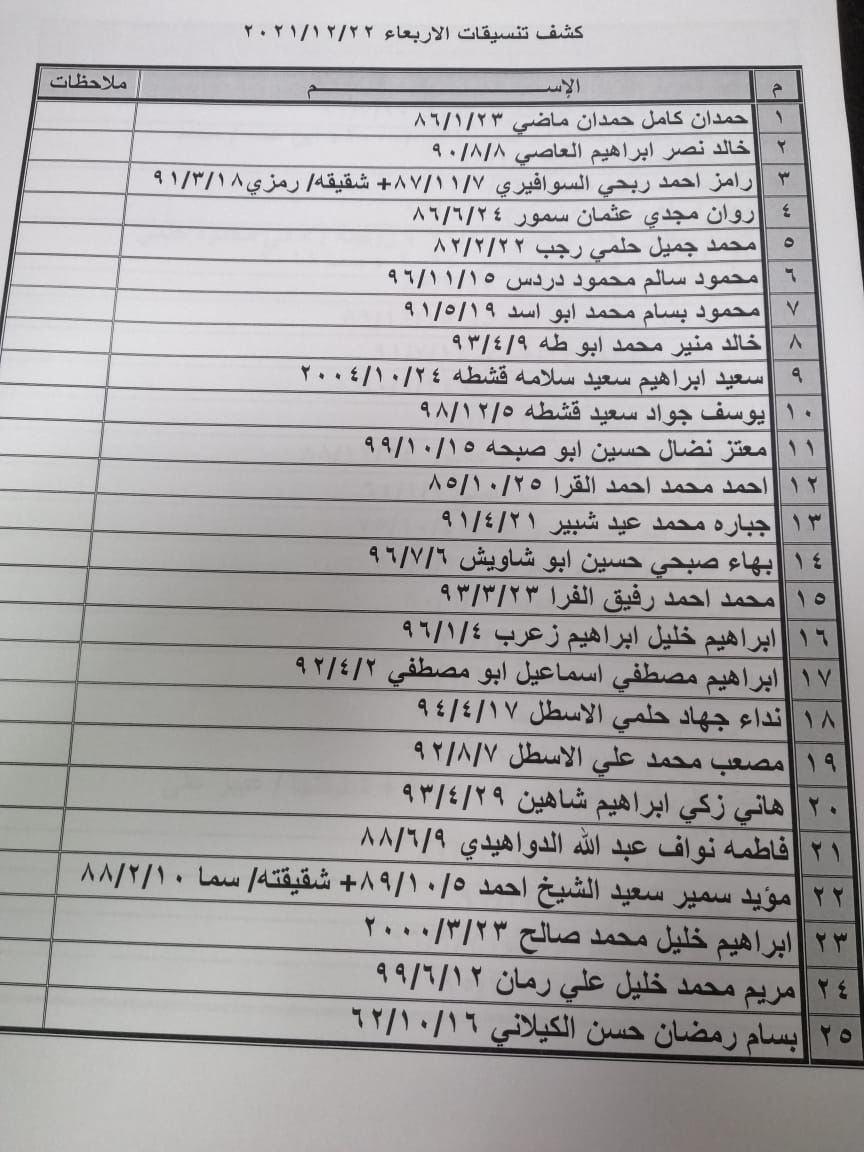 كشف تنسيقات الاربعاء ٢٠٢١/١٢/٢٢
م الإســـــم ملاحظات
١ حمدان كامل حمدان ماضي ٨٦/١/٢٣
٢ خالد نصر ابراهيم العاصي ٩٠/٨/٨
٣ رامز احمد ربحي السوافيري ٨٧/١١/٧+ شقيقه/ رمزي ٩١/٣/١٨
٤ روان مجدي عثمان سمور ٨٦/٦/٢٤
٥ محمد جميل حلمي رجب ٨٢/٢/٢٢
٦ محمود سالم محمود دردس ٩٦/١١/١٥
٧ محمود بسام محمد ابو اسد ٩١/٥/١٩
٨ خالد منير محمد ابو طه ٩٣/٤/٩
٩ سعيد ابراهيم سعيد سلامه قشطه ٢٠٠٤/١٠/٢٤
١٠ يوسف جواد سعيد قشطه ٩٨/١٢/٥
١١ معتز نضال حسين ابو صبحه ٩٩/١٠/١٥
١٢ احمد محمد احمد القرا ٨٥/١٠/٢٥
١٣ جباره محمد عيد شبير ٩١/٤/٢١
١٤ بهاء صبحي حسين ابو شاويش ٩٦/٧/٦
١٥ محمد احمد رفيق الفرا ٩٣/٣/٢٣
١٦ ابراهيم خليل ابراهيم زعرب ٩٦/١/٤
١٧ ابراهيم مصطفي اسماعيل ابو مصطفي ٩٢/٤/٢
١٨ نداء جهاد حلمي الاسطل ٩٤/٤/١٧
١٩ مصعب محمد علي الاسطل ٩٢/٨/٧
٢٠ هاني زكي ابراهيم شاهين ٩٣/٤/٢٩
٢١ فاطمه نواف عبد الله الدواهيدي ٨٨/٦/٩
٢٢ مؤيد سمير سعيد الشيخ احمد ٨٩/١٠/٥+ شقيقته/ سما ٨٨/٢/١٠
٢٣ ابراهيم خليل محمد صالح ٢٠٠٠/٣/٢٣
٢٤ مريم محمد خليل علي رمان ٩٩/٦/١٢
٢٥ بسام رمضان حسن الكيلاني ٦٢/١٠/١٦